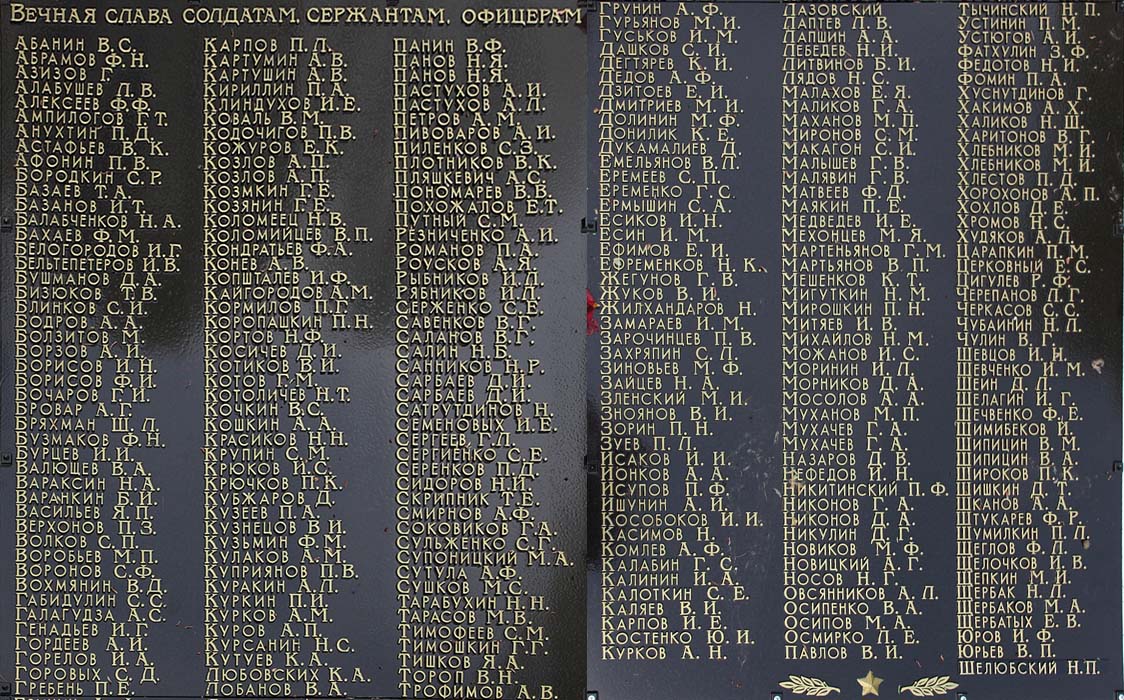 Вечная слава солдатам, сержантам, офицерам
Абанин В.С.
Абрамов Ф.Н.
Азизов Г.
Алабушев Л.В.
Алексеев Ф.Ф.
Ампилогов Г.Т.
Анухтин П.Д.
Астафьев В.К.
Афонин П.В.
Бородкин С.Р.
Базаев Т.А.
Базанов И.Т.
Балабченков Н.А.
Бахаев Ф.М.
Белогородов И.Г.
Бельтепетеров И.В.
Бушманов Д.А.
Бизюков Т.В.
Блинков С.И.
Бодров А.А.
Болзитов М.
Борзов А.И.
Борисов И.Н.
Борисов Ф.И.
Бочаров Г.И.
Бровар А.Г.
Бряхман Ш.Л.
Бузмаков Ф.Н.
Бурцев И.И.
Валющев В.А.
Вараксин Н.А.
Варанкин Б.И.
Васильев Я.П.
Верхонов П.З.
Волков С.П.
Воробьев М.П.
Воронов С.Ф.
Вохмянин В.Д.
Габидулин С.С.
Галагудза А.С.
Генадьев И.Г.
Гордеев А.И.
Горелов И.А.
Горовых С.Д.
Гребень П.Е.
Карпов П.Л.
Картумин А.В.
Картушин А.В.
Кириллин П.А.
Клиндухов И.Е.
Коваль В.М.
Кодочигов П.В.
Кожуров Е.К.
Козлов А.П.
Козлов А.П.
Козмкин Г.Е.
Козянин Г.Е.
Коломеец Н.В.
Коломийцев В.П.
Кондратьев Ф.А.
Конев А.В.
Копшталев И.Ф.
Кайгородов А.М.
Кормилов П.Г.
Коропашкин П.Н.
Кортов Н.Ф.
Косичев Д.И.
Котиков В.И.
Котов Г.М.
Котоличев Н.Т.
Кочкин В.С.
Кошкин А.А.
Красиков Н.Н.
Крупин С.М.
Крюков И.С.
Крючков П.К.
Кубжаров Д.
Кузеев П.А.
Кузнецов В.И.
Кузьмин Ф.М.
Кулаков А.М.
Куприянов П.В.
Куракин А.Л.
Куркин П.И.
Курков А.М.
Куров А.П.
Курсанин Н.С.
Кутуев К.А.
Любовских К.А.
Лобанов В.А.
Панин В.Ф.
Панов Н.Я.
Панов Н.Я.
Пастухов А.И.
Пастухов А.Л.
Петров А.М.
Пивоваров А.И.
Пиленков С.З.
Плотников В.К.
Пляшкевич А.С.
Пономарев В.В.
Похожалов Е.Т.
Путный С.М.
Резниченко А.И.
Романов П.А.
Роусков А.Я.
Рыбников И.Д.
Рябников И.Д.
Серженко С.Е.
Савенков В.Г.
Саланов В.Г.
Салин Н.Б.
Санников Н.Р.
Сарбаев Д.И.
Сарбаев Д.И.
Сатрутдинов Н.
Семеновых И.Е.
Сергеев Г.Л.
Сергиенко С.Е.
Серенков П.Д.
Сидоров Н.И.
Скрипник Т.Е.
Смирнов А.Ф.
Соковиков Г.А.
Сульженко С.Г.
Супоницкий М.А.
Сутула А.Ф.
Сушков М.С.
Тарабухин Н.Н.
Тарасов М.В.
Тимофеев С.М.
Тимошкин Г.Г.
Тишков Я.А.
Тороп В.Н.
Трофимов А.В.
Грунин А.Ф.
Гурьянов М.Г.
Гуськов И.М.
Дашков С.И.
Дегтярев К.И.
Дедов А.Ф.
Дзитоев Е.И.
Дмитриев М.И.
Долинин М.Ф.
Донилик К.Е.
Дукамалиев Д.
Емельянов В.Л.
Еремеев С.П.
Еременко Г.С.
Ермышин С.А.
Есиков И.Н.
Есин И.М.
Ефимов Е.И.
Ефременков Н.К.
Жегунов Г.В.
Жуков В.И.
Жилхандаров Н.
Замараев И.М.
Зарочинцев П.В.
Захряпин С.Л.
Зиновьев М.Ф.
Зайцев Н.А.
Зленский М.И.
Зноянов В.И.
Зорин П.Н.
Зуев П.Л.
Исаков И.И.
Ионков А.А.
Исупов П.Ф.
Ишунин А.И.
Кособоков И.И.
Касимов Н.
Комлев А.Ф.
Калабин Г.С.
Калинин И.А.
Калоткин С.Е.
Каляев В.И.
Карпов И.Е.
Костенко Ю.И.
Курков А.Н.
Лазовский
Лаптев Л.В.
Лапшин А.А.
Лебедев Н.И.
Литвинов Б.И.
Лядов Н.С.
Малахов Е.Я.
Маликов Г.А.
Маханов М.П.
Миронов С.М.
Макагон С.И.
Малышев Г.В.
Малявин Г.В.
Матвеев Ф.Д.
Маякин П.Е.
Медведев И.Е.
Мехонцев М.Я.
Мартеньянов Г.М.
Мартьянов В.П.
Мешенков К.Т.
Мигуткин Н.М.
Мирошкин П.Н.
Митяев И.В.
Михайлов Н.М.
Можанов И.С.
Моринин И.Л.
Морников Д.А.
Мосолов А.А.
Муханов М.П.
Мухачев Г.А.
Мухачев Г.А.
Назаров Д.В.
Нефедов И.Н.
Никитинский П.Ф.
Никонов Г.А.
Никонов Д.А.
Никулин Д.Г.
Новиков М.Ф.
Новицкий А.Г.
Носов Н.Г.
Овсянников А.Л.
Осипенко В.А.
Осипов М.А.
Осмирко Л.Е.
Павлов В.И.
Тычинский Н.П.
Устинин П.М.
Устюгов А.И.
Фатхулин З.Ф.
Федотов Н.И.
Фомин П.А.
Хуснутдинов Г.
Хакимов А.Х.
Халиков Н.Ш.
Харитонов В.Г.
Хлебников М.И.
Хлебников М.И.
Хлестов П.Д.
Хорохонов А.П.
Хохлов Д.Е.
Хромов Д.С.
Худяков А.Л.
Царапкин П.М.
Церковный Е.С.
Цигулев Р.Ф.
Черепанов Л.Г.
Черкасов С.С.
Чубаинн Н.Л.
Чулин В.Г.
Шевцов И.И.
Шевченко И.М.
Шеин Д.Л.
Шелагин И.Г.
Шечвенко Ф.Е.
Шимибеков И.
Шипицин В.М.
Шипицин В.А.
Широков П.К.
Шишкин Д.Т.
Шканов А.А.
Штукарев Ф.Р.
Шумилкин П.Л.
Щеглов Ф.Л.
Щелочков И.В.
Щепкин М.И.
Щербак Н.Л.
Щербаков М.А.
Щербатых Е.В.
Юров И.Ф.
Юрьев В.П.
Шелюбский Н.П.